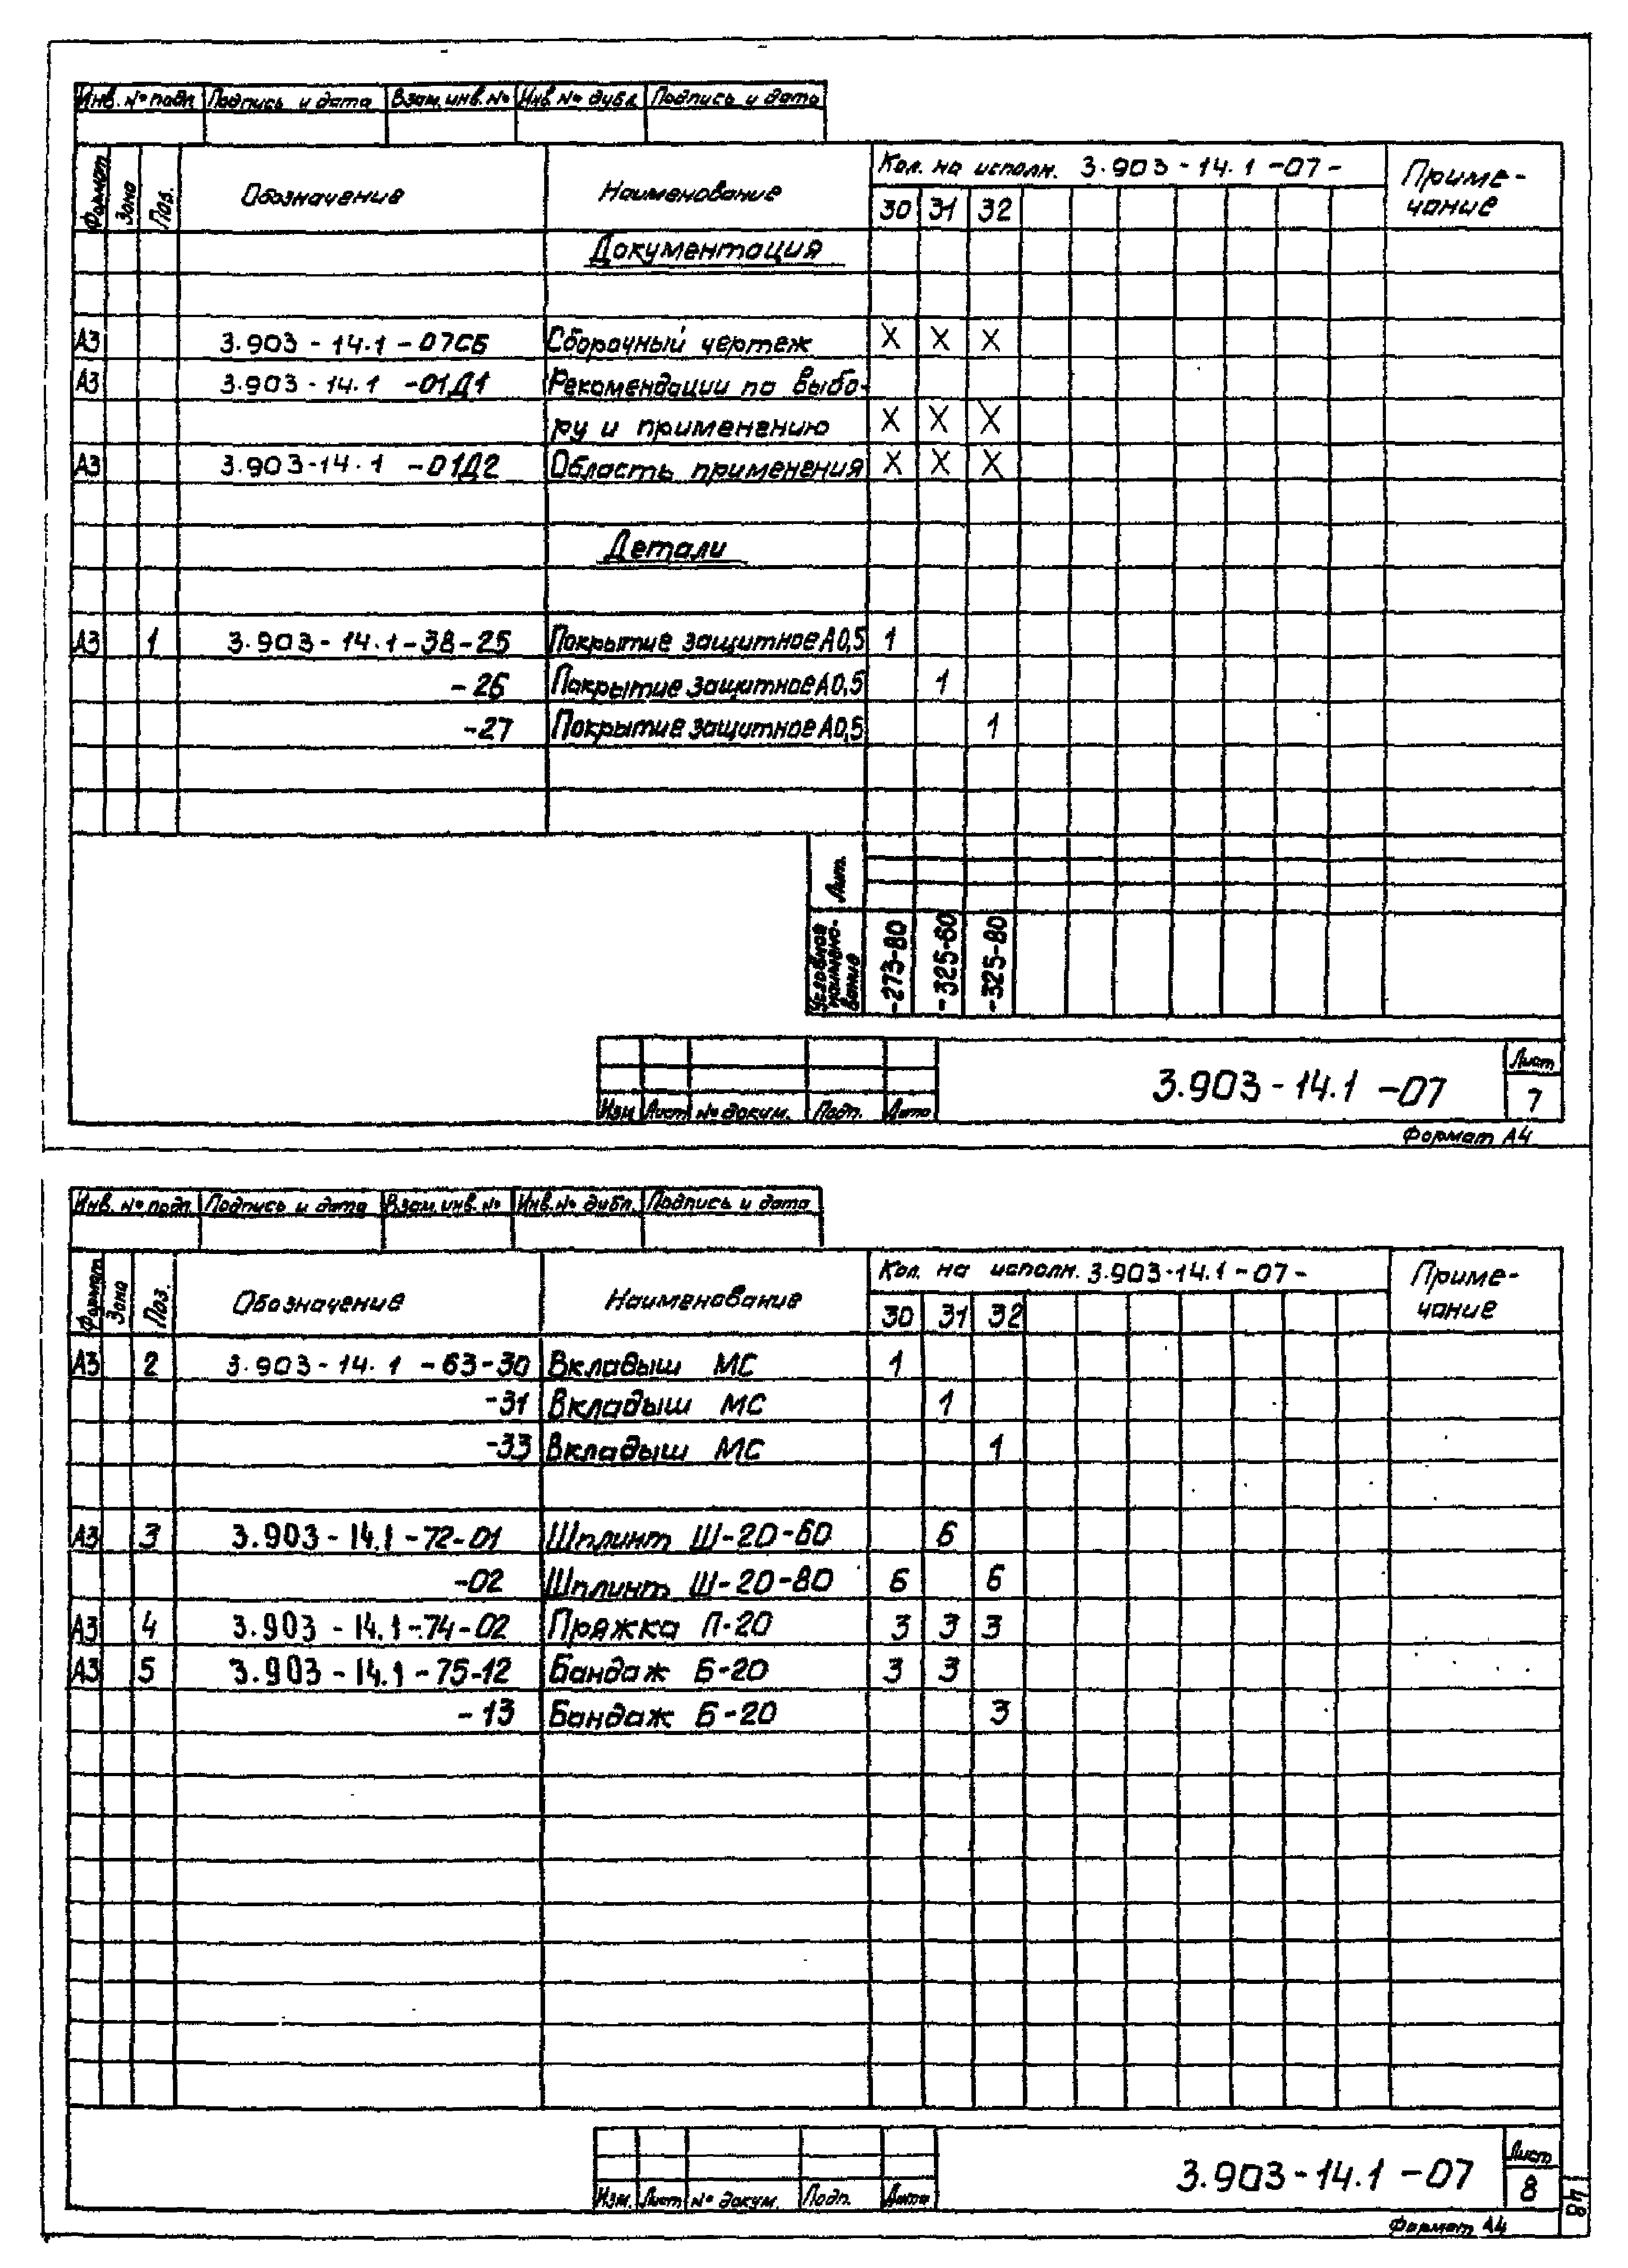 Инв. № подп. Подпись и дата Взам. инв. № Инв. № дубл. Подпись и дата
Формат Зона Поз. Обозначение Наименование Кол. на исполн. 3.903-14.1-07- Приме-
чание
30 31 32
Документация
А3 3.903-14.1-07СБ Сборочный чертеж X X X
А3 3.903-14.1-01Д1 Рекомендации по выбо-
ру и применению X X X
А3 3.903-14.1-01Д2 Область применения X X X
Детали
А3 1 3.903-14.1-38-25 Покрытие защитное А0,5 1
-26 Покрытие защитное А0,5 1
-27 Покрытие защитное А0,5 1
Лит.
Условное наимено-
вание -273-80 -325-60 -325-80
Изм. Лист № докум. Подп. Дата
3.903-14.1-07
Лист
7
Формат А4
Инв. № подп. Подпись и дата Взам. инв. № Инв. № дубл. Подпись и дата
Формат Зона Поз. Обозначение Наименование Кол. на исполн. 3.903-14.1-07- Приме-
чание
30 31 32
А3 2 3.903-14.1-63-30 Вкладыш МС 1
-31 Вкладыш МС 1
-33 Вкладыш МС 1
А3 3 3.903-14.1-72-01 Шплинт Ш-20-60 6
-02 Шплинт Ш-20-80 6 6
А3 4 3.903-14.1-74-02 Пряжка П-20 3 3 3
А3 5 3.903-14.1-75-12 Бандаж Б-20 3 3
-13 Бандаж Б-20 3
Изм. Лист № докум. Подп. Дата
3.903-14.1-07
Лист
8
Формат А4
48